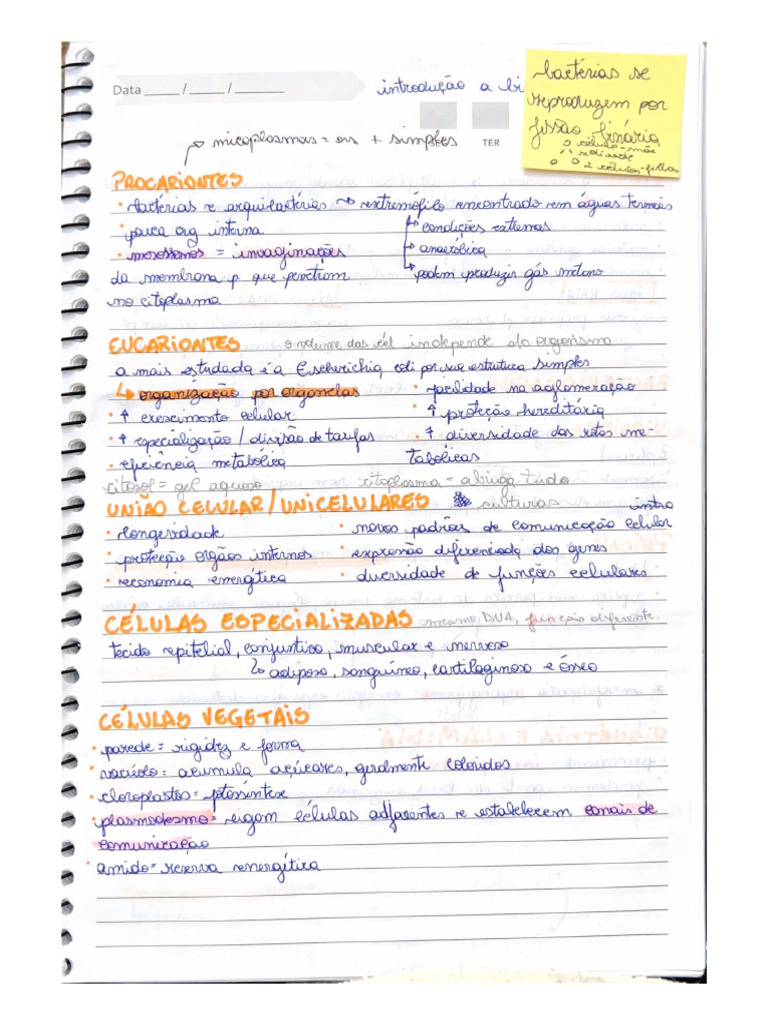 Data ____ / ____ / ______
introdução a bi
TER
bactérias se
reproduzem por
fissão binária
célula-mãe
se divide
2 células-filhas
micoplasmas = os + simples
PROCARIONTES
• bactérias e arquibactérias → extremófilo encontrado em águas termais
• pouca org interna
condições extremas
• mesossomos = invaginações
anaeróbica
da membrana p que penetram
podem produzir gás metano
no citoplasma
EUCARIONTES o volume das cél independe do organismo
a mais estudada é a Escherichia coli por sua estrutura simples
↳ organização por organelas
• facilidade na aglomeração
• ↑ crescimento celular
• ↑ proteção hereditária
• ↑ especialização / divisão de tarefas
• ↑ diversidade das rotas me-
• eficiência metabólica
tabólicas
citosol = gel aquoso citoplasma = abriga tudo
UNIÃO CELULAR / UNICELULARES culturas intra
• longevidade
• novos padrões de comunicação celular
• proteção órgãos internos
• expressão diferenciada dos genes
• economia energética
• diversidade de funções celulares
CÉLULAS ESPECIALIZADAS mesmo DNA, função diferente
tecido epitelial, conjuntivo, muscular e nervoso
↳ adiposo, sanguíneo, cartilaginoso e ósseo
CÉLULAS VEGETAIS
• parede = rigidez e forma
• vacúolo = acumula açúcares, geralmente coloridos
• cloroplastos = fotossíntese
• plasmodesmo = ligam células adjacentes e estabelecem canais de
comunicação
• amido = reserva energética